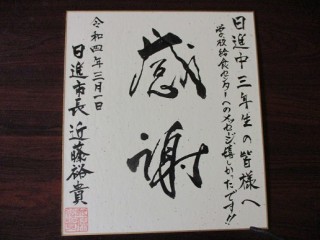 日進中三年生の皆様へ
学校給食センターへのメッセージ嬉しかったです!!
感謝
令和四年三月一日
日進市長 近藤裕貴